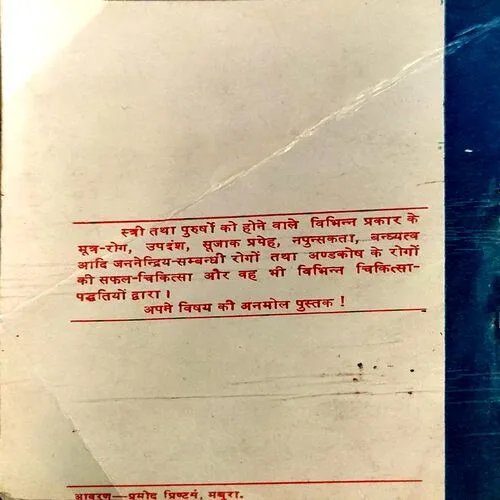 स्त्री तथा पुरुषों को होने वाले विभिन्न प्रकार के
मूत्र-रोग, उपदंश, सूजाक प्रमेह, नपुन्सकता, बन्ध्यत्व
आदि जननेन्द्रिय-सम्बन्धी रोगों तथा अण्डकोष के रोगों
की सफल-चिकित्सा और वह भी विभिन्न चिकित्सा-
पद्धतियों द्वारा।
अपने विषय की अनमोल पुस्तक !
आवरण—प्रमोद प्रिण्टर्स, मथुरा.